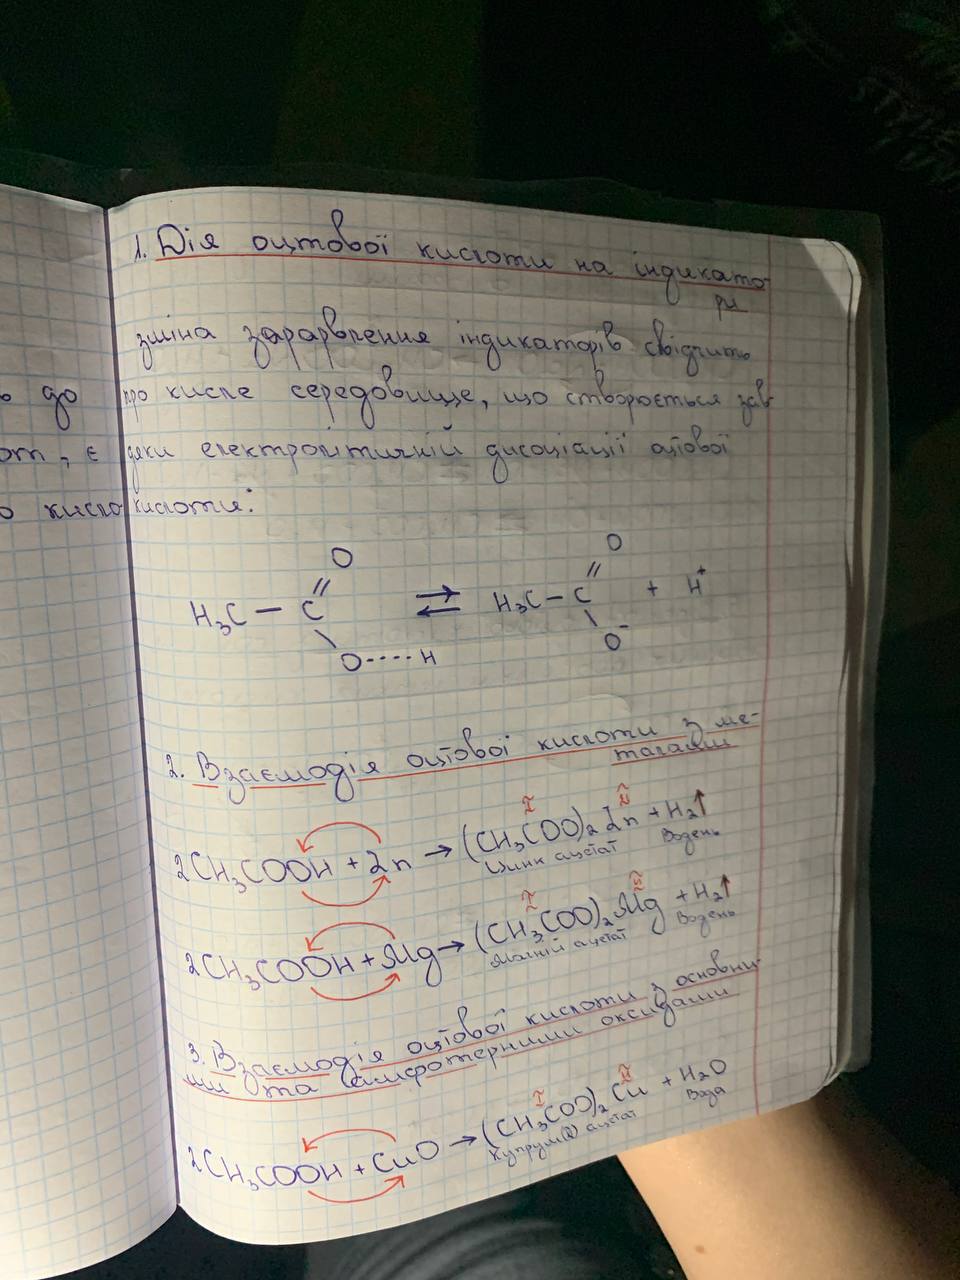 1. Дія оцтової кислоти на індикато-
ри
зміна забарвлення індикаторів свідчить
ь до
про кисле середовище, що створюється зав-
от, є
дяки електролітичній дисоціації оцтової
о кисло
кислоти:
O O
H₃C – C ⇄ H₃C – C + H⁺
O----H O⁻
2. Взаємодія оцтової кислоти з ме-
талами
I II
2CH₃COOH + Zn → (CH₃COO)₂Zn + H₂↑
Цинк ацетат Водень
I II
2CH₃COOH + Mg → (CH₃COO)₂Mg + H₂↑
Магній ацетат Водень
3. Взаємодія оцтової кислоти з основни-
ми та амфотерними оксидами
I II
2CH₃COOH + CuO → (CH₃COO)₂Cu + H₂O
Купрум(II) ацетат Вода